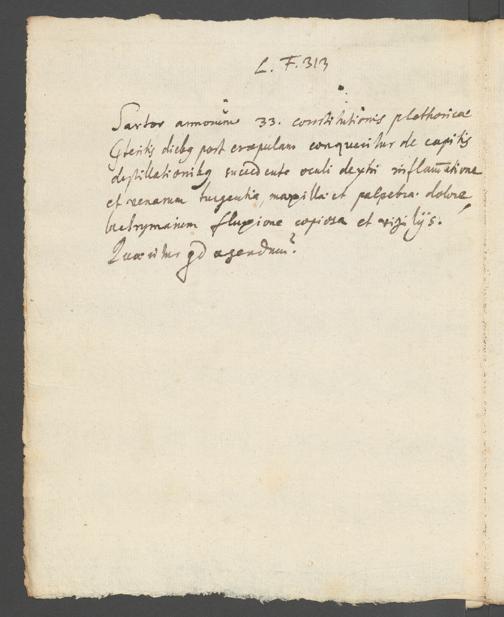 L. F. 313
Sartor annorum 33. constitutionis plethoricae
dieb9 post crapulam conqueritur de capitis
destillationib9 succedente oculi dextri inflamatione
et venarum turgentia, maxillae et palpebrae dolore,
lachrymarum fluxione copiosa et vigilijs.
Quaeritur qd agendum?